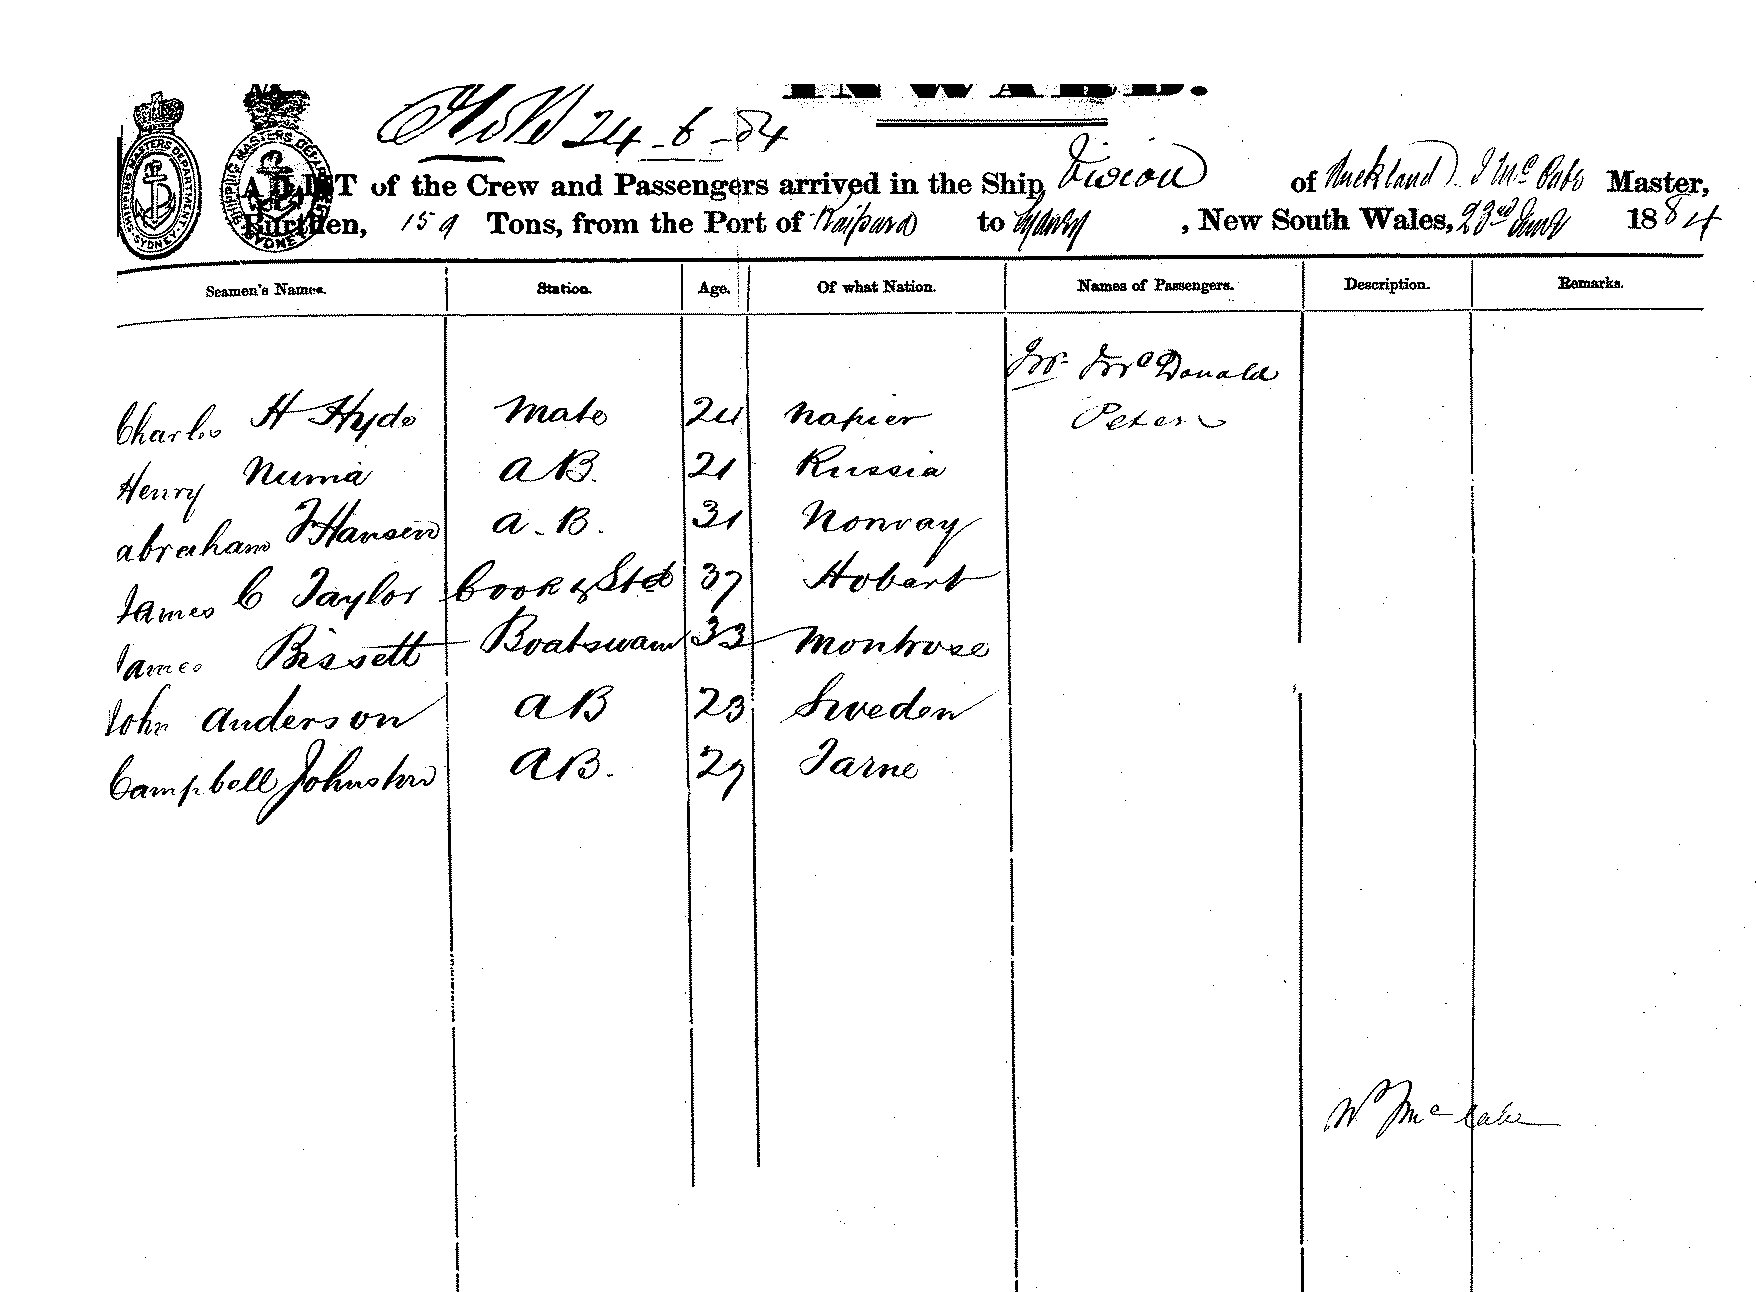 INWARD.
24-6-84
A LIST of the Crew and Passengers arrived in the Ship Vision of Auckland, Master,
Burthen, 159 Tons, from the Port of Kaipara to Sydney, New South Wales, 23rd June 1884
Seamen's Names. Station. Age. Of what Nation. Names of Passengers. Description. Remarks.
Mr McDonald
Charles H Hyde Mate 24 Napier Peter
Henry Numa AB. 21 Russia
Abraham J Hansen A.B. 31 Norway
James C Taylor Cook & Std 37 Hobart
James Bissett Boatswain 33 Montrose
John Anderson AB 23 Sweden
Campbell Johnston AB. 29
Wm
SHIPPING MASTERS DEPARTMENT SYDNEY
SHIPPING MASTERS DEPARTMENT SYDNEY